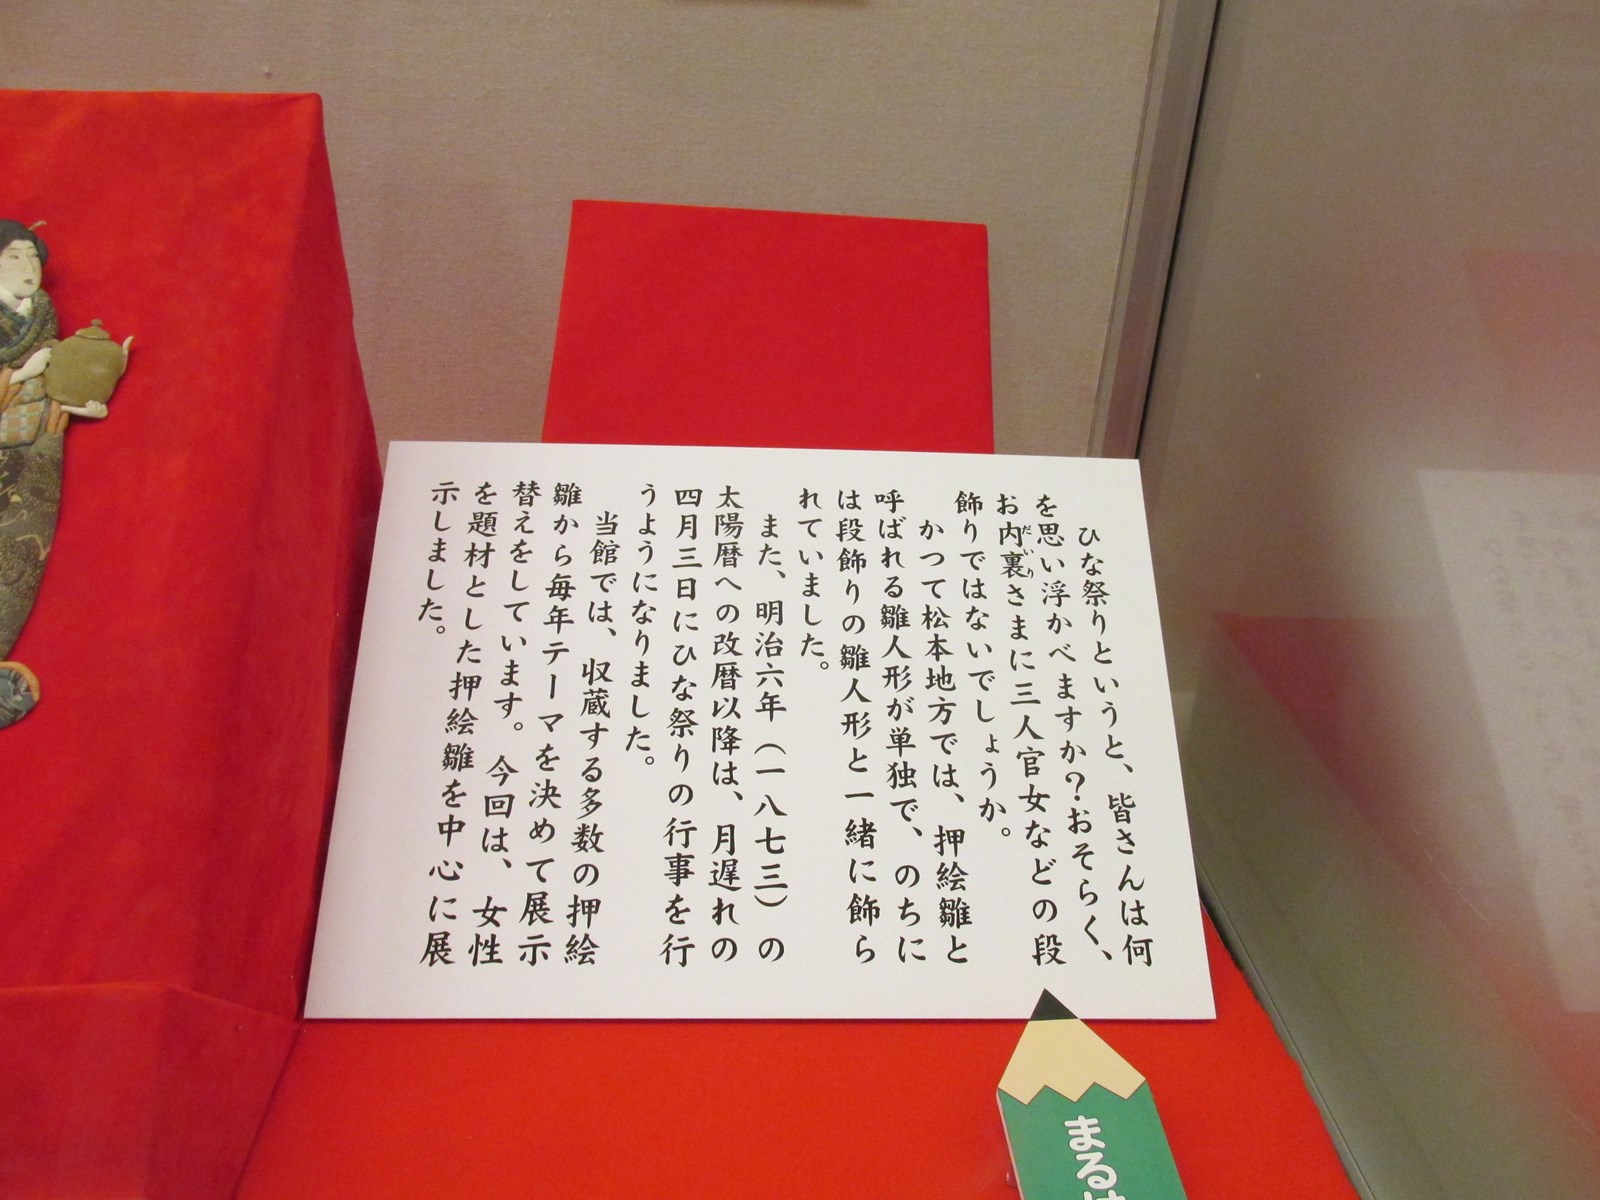 ひな祭りというと、皆さんは何
を思い浮かべますか？おそらく、
お内裏さまに三人官女などの段
だいり
飾りではないでしょうか。
かつて松本地方では、押絵雛と
呼ばれる雛人形が単独で、のちに
は段飾りの雛人形と一緒に飾ら
れていました。
また、明治六年（一八七三）の
太陽暦への改暦以降は、月遅れの
四月三日にひな祭りの行事を行
うようになりました。
当館では、収蔵する多数の押絵
雛から毎年テーマを決めて展示
替えをしています。今回は、女性
を題材とした押絵雛を中心に展
示しました。
まる